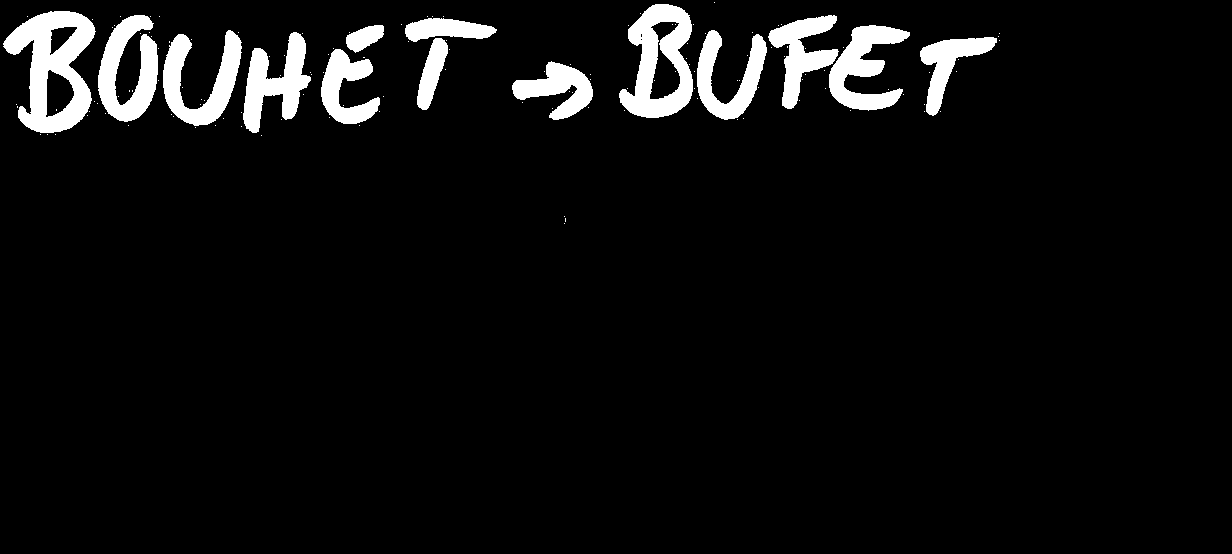 BOUHET → BUFET